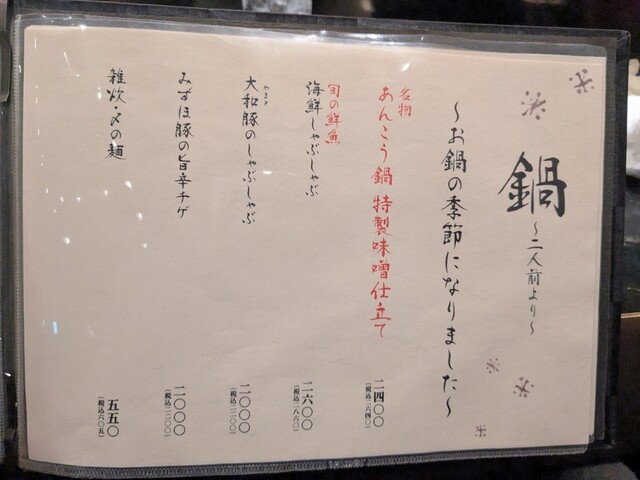 鍋
〜二人前より〜
〜お鍋の季節になりました〜
名物
あんこう鍋 特製味噌仕立て
二四〇〇
(税込二六四〇)
旬の鮮魚
海鮮しゃぶしゃぶ
二六〇〇
(税込二八六〇)
やまと
大和豚のしゃぶしゃぶ
二〇〇〇
(税込二二〇〇)
みずほ豚の旨辛チゲ
二〇〇〇
(税込二二〇〇)
雑炊・〆の麺
五五〇
(税込六〇五)